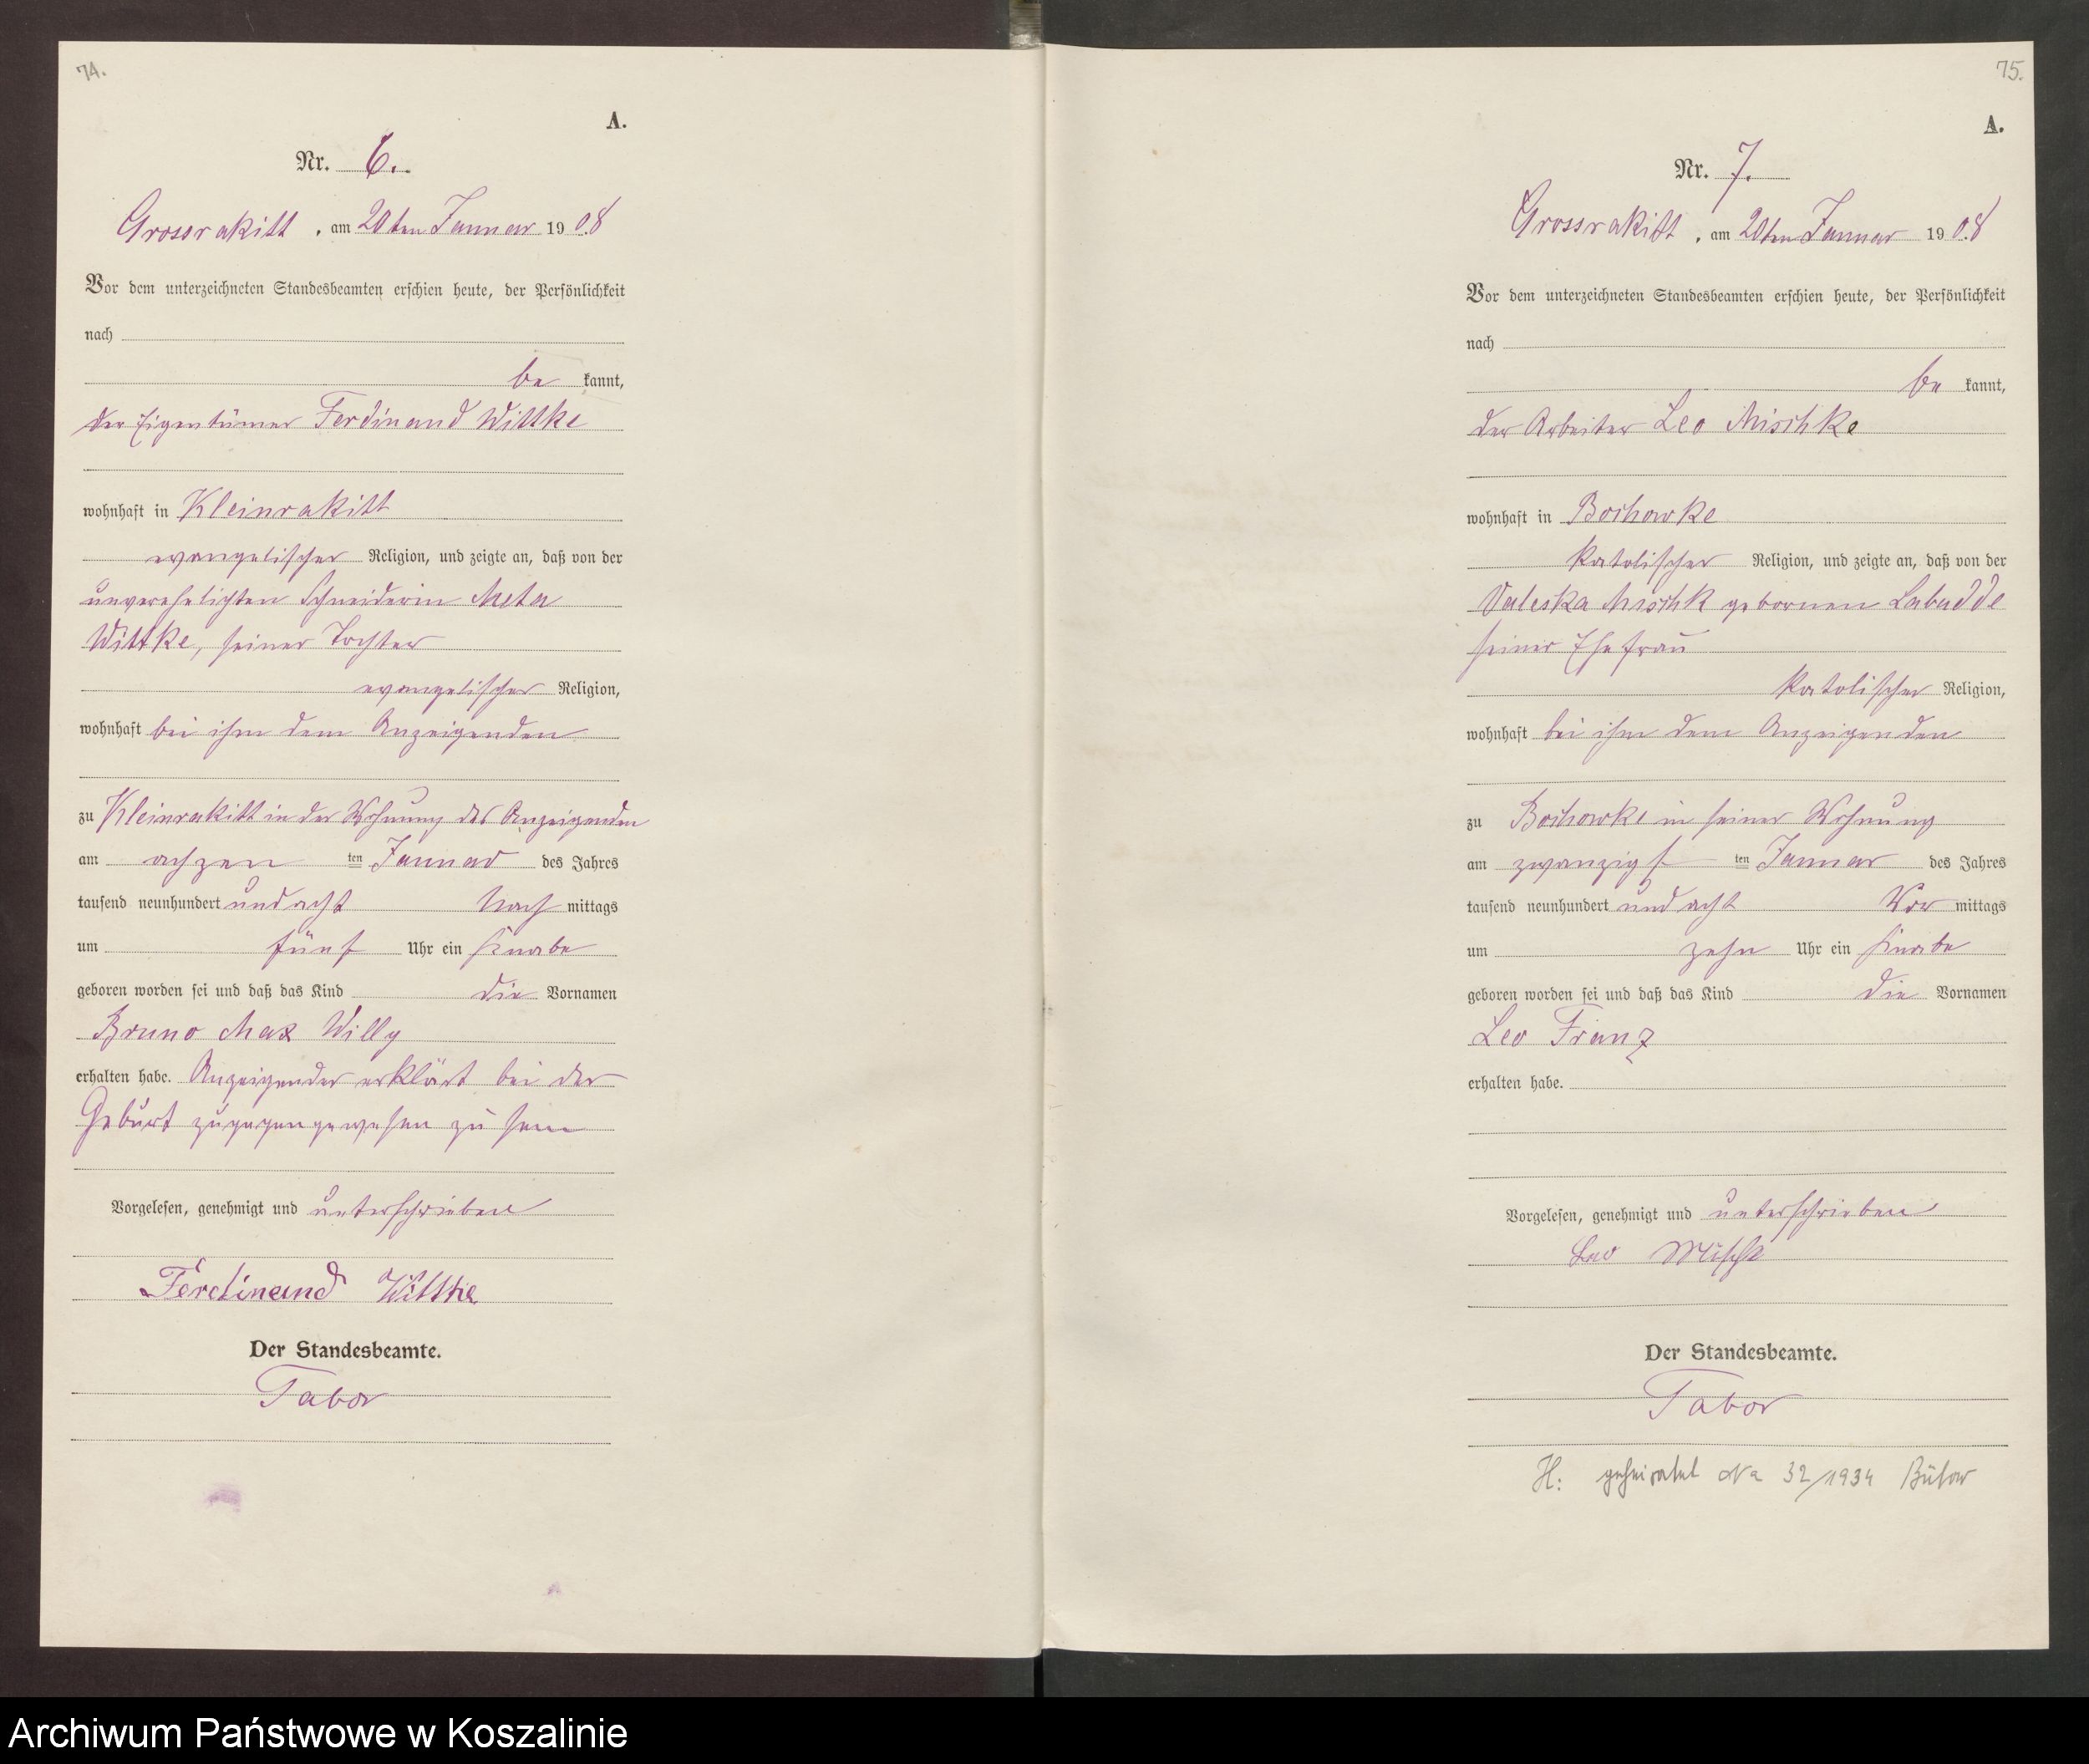 74.
A.
Nr. 6.
Grossrakitt, am 20ten Januar 1908
Vor dem unterzeichneten Standesbeamten erschien heute, der Persönlichkeit
nach
be kannt,
der Eigentümer Ferdinand Wittke
wohnhaft in Kleinrakitt
evangelischer Religion, und zeigte an, daß von der
unverehelichten Schneiderin Meta
Wittke, seiner Tochter
evangelischer Religion,
wohnhaft bei ihm dem Anzeigenden
zu Kleinrakitt in der Wohnung des Anzeigenden
am achzen ten Januar des Jahres
tausend neunhundert und acht Nach mittags
um fünf Uhr ein Knabe
geboren worden sei und daß das Kind die Vornamen
Bruno Max Willy
erhalten habe. Anzeigender erklärt bei der
Geburt zugegen gewesen zu sein
Vorgelesen, genehmigt und unterschrieben
Ferdinand Wittke
Der Standesbeamte.
Tabor
75.
A.
Nr. 7.
Grossrakitt, am 20ten Januar 1908
Vor dem unterzeichneten Standesbeamten erschien heute, der Persönlichkeit
nach
be kannt,
der Arbeiter Leo Mischke
wohnhaft in Bochowke
katolischer Religion, und zeigte an, daß von der
Valeska Mischk gebornen Labudde
seiner Ehefrau
katolischer Religion,
wohnhaft bei ihm dem Anzeigenden
zu Bochowke in seiner Wohnung
am zwanzigs ten Januar des Jahres
tausend neunhundert und acht Vor mittags
um zehn Uhr ein Knabe
geboren worden sei und daß das Kind die Vornamen
Leo Franz
erhalten habe.
Vorgelesen, genehmigt und unterschrieben
Leo Mischk
Der Standesbeamte.
Tabor
H: geheiratet Nr 32/1934 Bütow
Archiwum Państwowe w Koszalinie